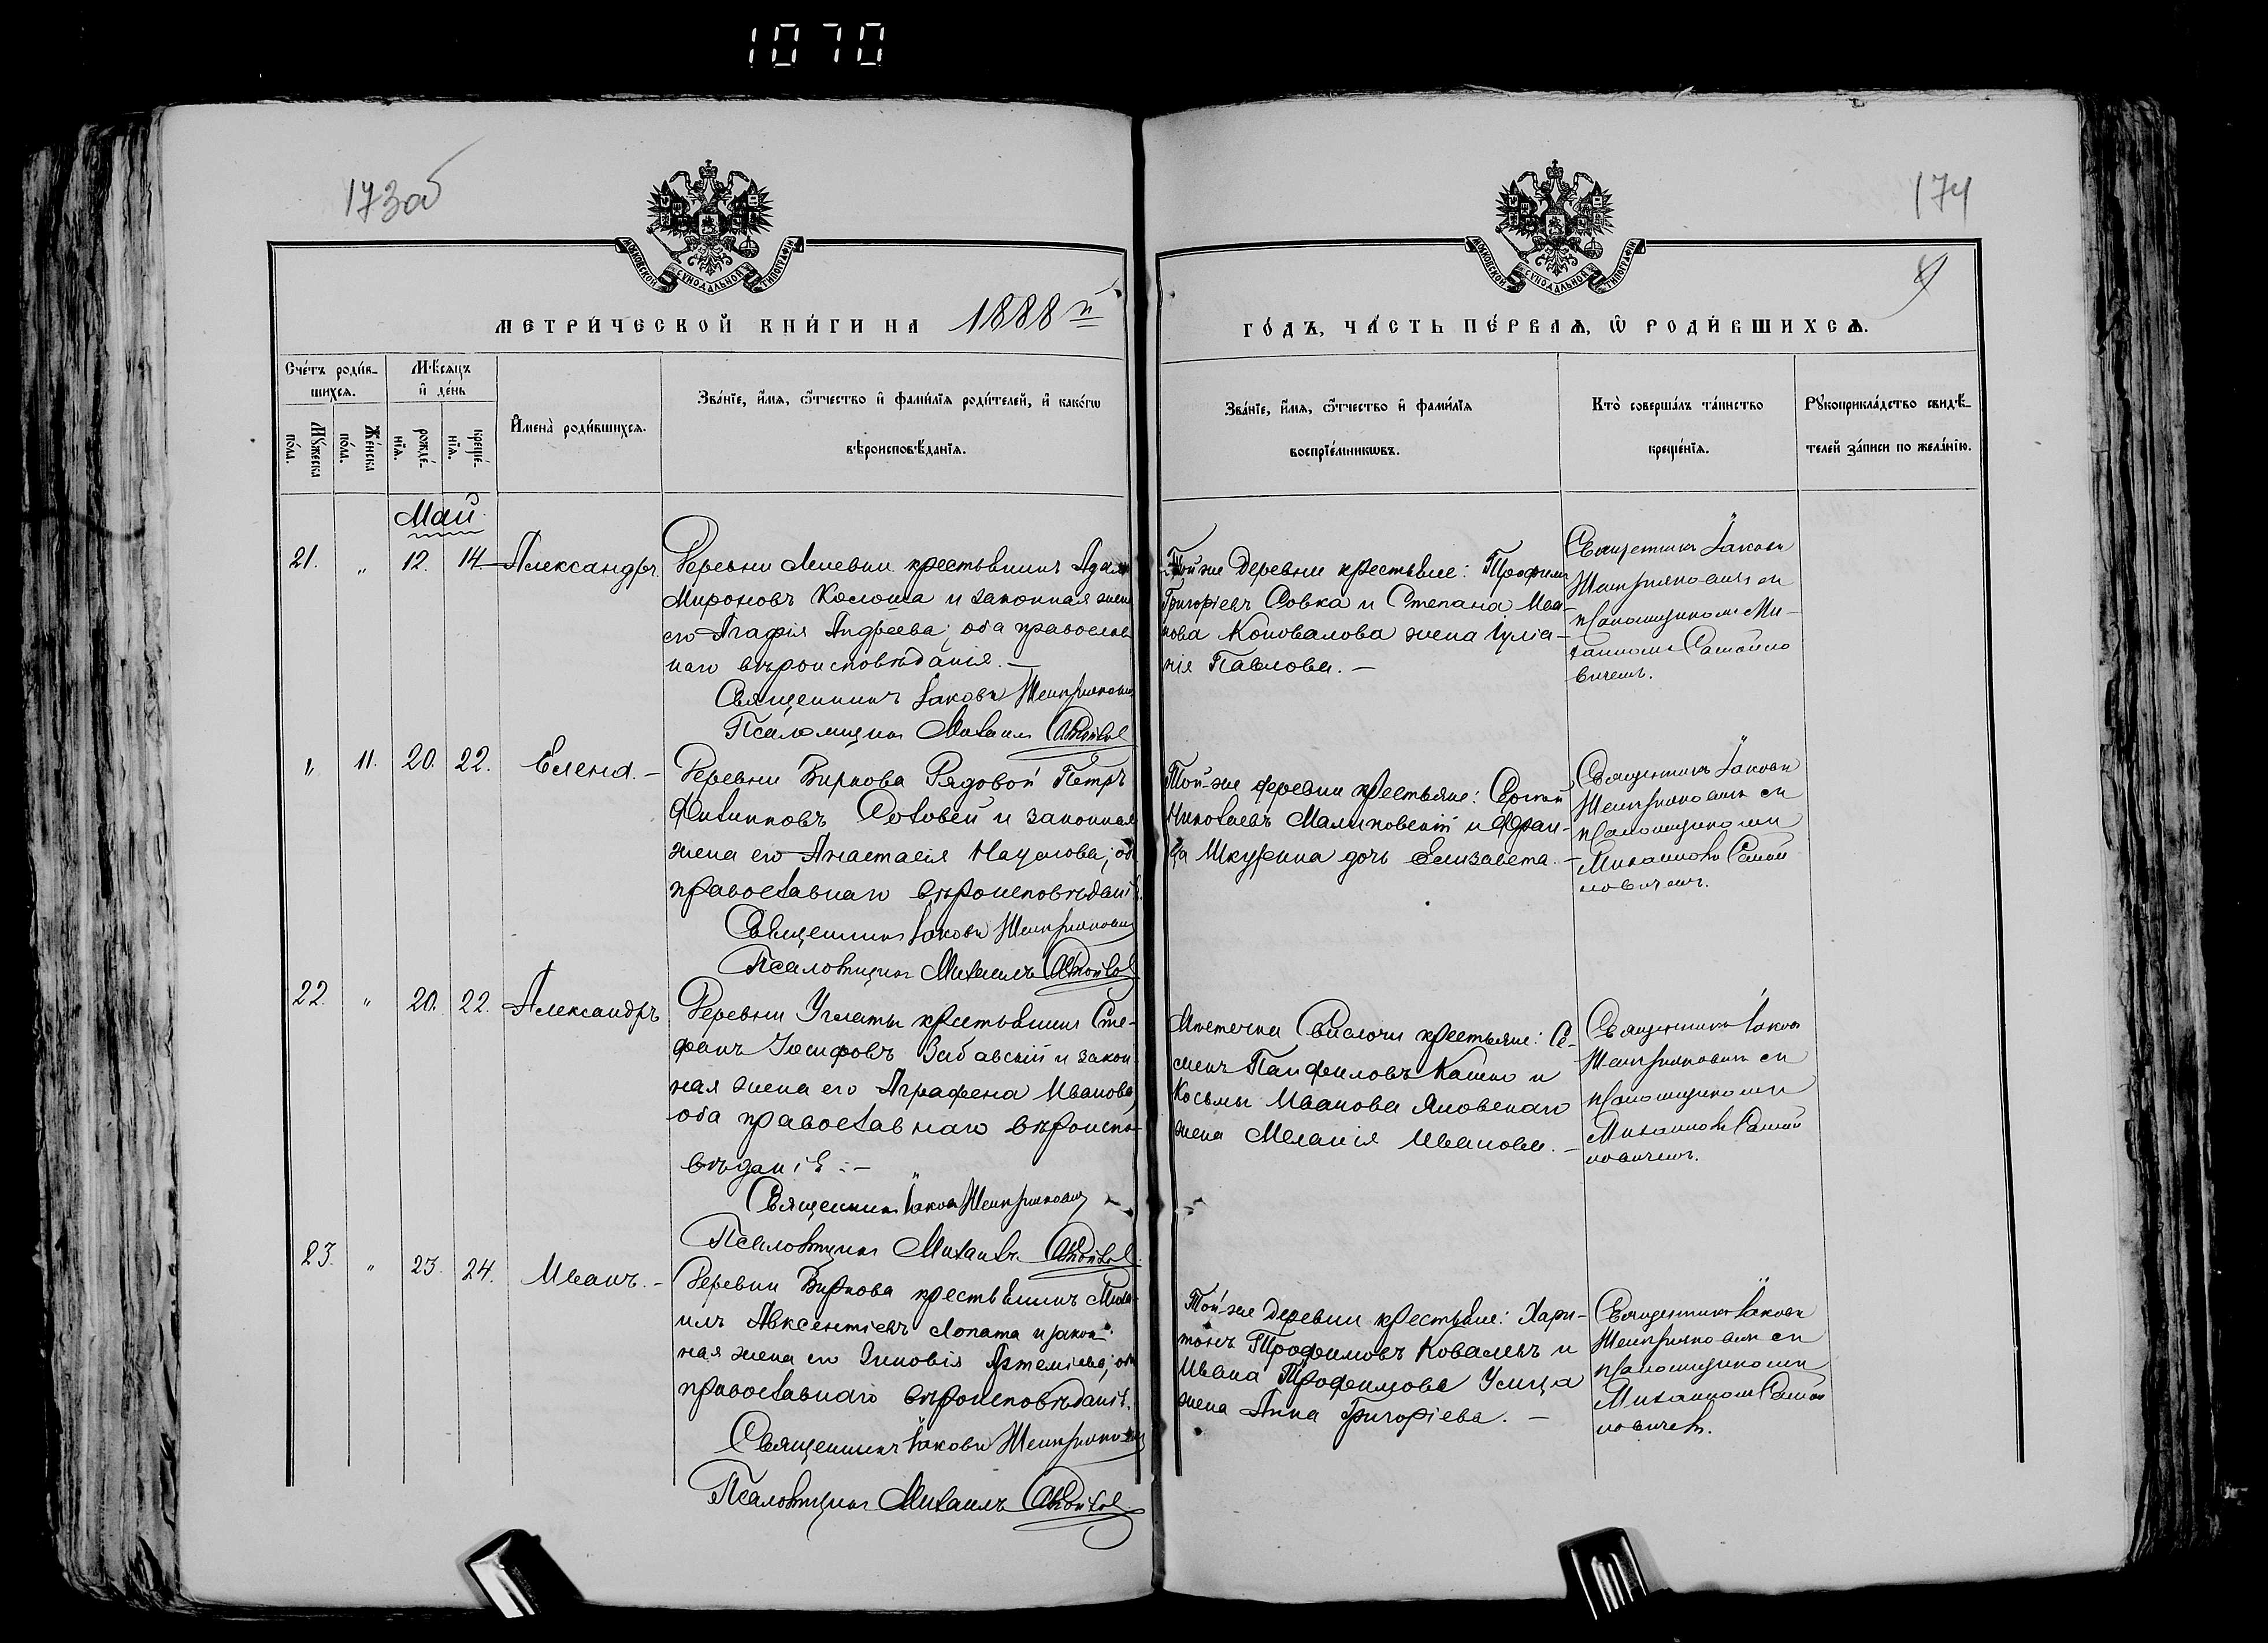 1070
173об
174
МОСКОВСКОЙ СѴНОДАЛЬНОЙ ТИПОГРАФІИ
МОСКОВСКОЙ СѴНОДАЛЬНОЙ ТИПОГРАФІИ
МЕТРИ́ЧЕСКОЙ КНИ́ГИ НА 1888й
ГО́ДЪ, ЧА́СТЬ ПЕ́РВАѦ, Ѽ РОДИ́ВШИХСѦ.
Сче́тъ роди́в-
шихсѧ.
Мꙋ́жеска
по́ла.
Же́нска
по́ла.
Мѣ́сѧцъ
и҆ де́нь
рожде́-
нїѧ.
креще́-
нїѧ.
И҆мена̀ роди́вшихсѧ.
Зва́нїе, и҆́мѧ, ѻ҆́тчество и҆ фами́лїѧ роди́телей, и҆ како́гѡ
вѣроисповѣ́данїѧ.
Зва́нїе, и҆́мѧ, ѻ҆́тчество и҆ фами́лїѧ
воспрїе́мникѡвъ.
Кто̀ соверша́лъ та́инство
креще́нїѧ.
Рꙋкоприкла́дство свидѣ́-
телей за́писи по жела́нїю.
Май
21. " 12. 14 Александръ.
Деревни крестьянинъ Адам
Мироновъ Колоша и законная жена
его Агафія Андреева; оба православ
наго вѣроисповѣданія. —
Священникъ Іаковъ
Псаломщикъ Михаилъ
Той же деревни крестьяне: Трофимъ
Григоріевъ Совка и Степана Ива-
нова Коновалова жена Іуліа-
нія Павлова. —
Священникъ Іаковъ
съ
псаломщикомъ Ми-
хаиломъ Самойло
вичемъ.
" 11. 20. 22. Елена. —
Деревни Виркова Рядовой Петръ
и законная
жена его Анастасія Наумова; оба
православнаго вѣроисповѣданія.
Священникъ Іаковъ
Псаломщикъ Михаилъ
Той-же деревни крестьяне: Сергѣй
Николаевъ Малиновскій и Фран-
ца Шкурина дочь Елизавета. —
Священникъ Іаковъ
съ
псаломщикомъ
Михаиломъ Самой
ловичемъ.
22. " 20. 22. Александръ
Деревни Углаты крестьянинъ Сте-
фанъ Іосифовъ и закон
ная жена его Аграфена Иванова,
оба православнаго вѣроиспо-
вѣданія. —
Священникъ Іаковъ
Псаломщикъ Михаилъ
Мѣстечка Свислочи крестьяне: Се-
менъ Панфиловъ и
Косьмы Иванова Яновскаго
жена Меланія Иванова. —
Священникъ Іаковъ
съ
псаломщикомъ
Михаиломъ Самой
ловичемъ.
23. " 23. 24. Иванъ. —
Деревни Виркова крестьянинъ Миха
илъ Авксентіевъ Лопата и закон
ная жена его Зиновія Артеміева; оба
православнаго вѣроисповѣданія.
Священникъ Іаковъ
Псаломщикъ Михаилъ
Той-же деревни крестьяне: Хари-
тонъ Трофимовъ Ковалевъ и
Ивана Трофимова
жена Анна Григоріева. —
Священникъ Іаковъ
съ
псаломщикомъ
Михаиломъ Самой
ловичемъ.